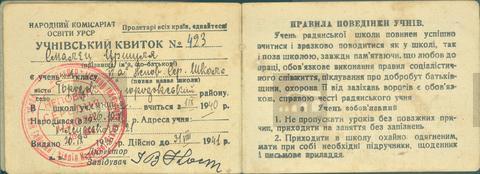 НАРОДНІЙ КОМІСАРІАТ
ОСВІТИ УРСР
Пролетарі всіх країн, єднайтеся!
УЧНІВСЬКИЙ КВИТОК № 423
(прізвище, ім'я, по-батькові)
є учень класа
(повна назва школи)
району.
В школі учиться з 1/IX 1940
Народився
Адреса учня
Видано 20/IX 1940 Дійсно до 31/VIII 1941 р.
Директор
Завідувач
ПРАВИЛА ПОВЕДІНКИ УЧНІВ.
Учень радянської школи повинен успішно
вчитися і зразково поводитися як у школі, так
і поза школою, завжди пам'ятаючи, що любов до
праці, обов'язкове виконання правил соціалістич-
ного співжиття, піклування про добробут батьків-
щини, охорона її від зазіхань ворогів є обов'яз-
ком, справою честі радянського учня
Учень зобов'язаний:
1. Не пропускати уроків без поважних при-
чин, приходити на заняття без запізнень.
2. Приходити в школу охайно одягненим,
мати при собі необхідні підручники, щоденник
і письмове приладдя.